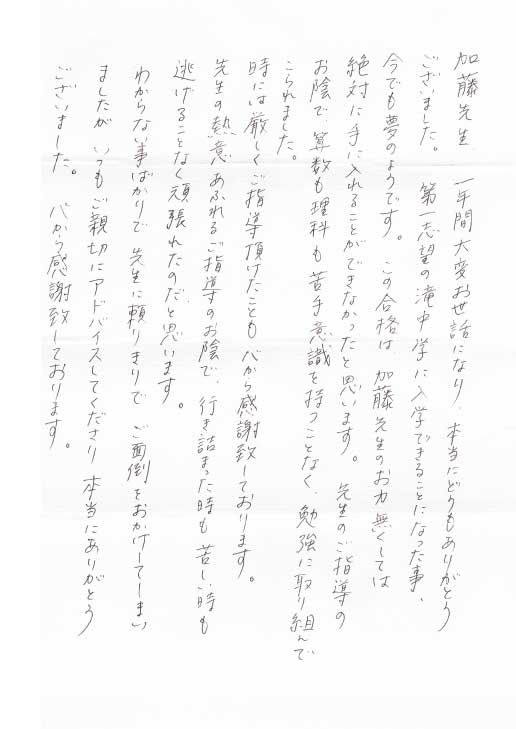 加藤先生　一年間大変お世話になり、本当にどうもありがとう
ございました。　第一志望の滝中学に入学できることになった事、
今でも夢のようです。　この合格は、加藤先生のお力無くしては
絶対に手に入れることができなかったと思います。　先生のご指導の
お陰で、算数も理科も苦手意識を持つことなく、勉強に取り組んで
こられました。
時には厳しくご指導頂けたことも心から感謝致しております。
先生の熱意あふれるご指導のお陰で、行き詰まった時も苦しい時も
逃げることなく頑張れたのだと思います。
わからない事ばかりで　先生に頼りきりで　ご面倒をおかけしてしまい
ましたが　いつもご親切にアドバイスしてくださり　本当にありがとう
ございました。　心から感謝致しております。